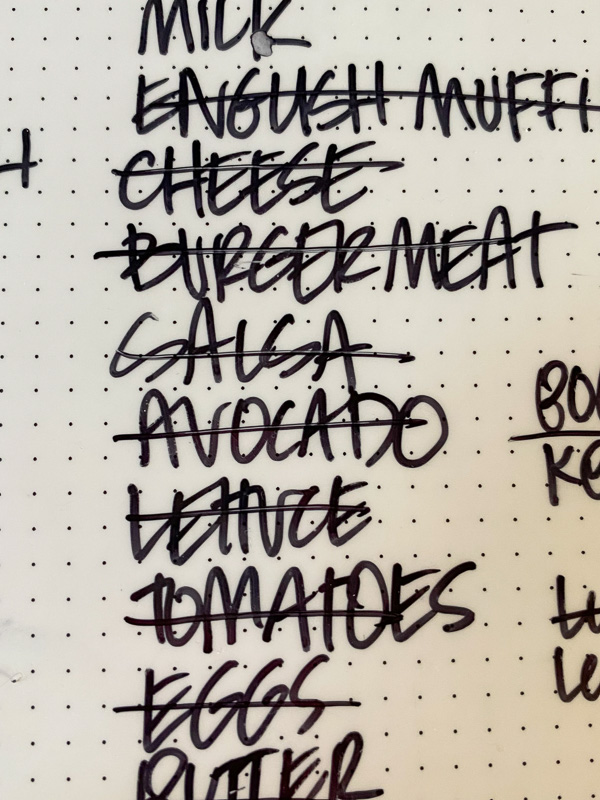 MILK
ENGLISH MUFFI
CHEESE
BURGER MEAT
SALSA
AVOCADO
LETTUCE
TOMATOES
EGGS
BUTTER